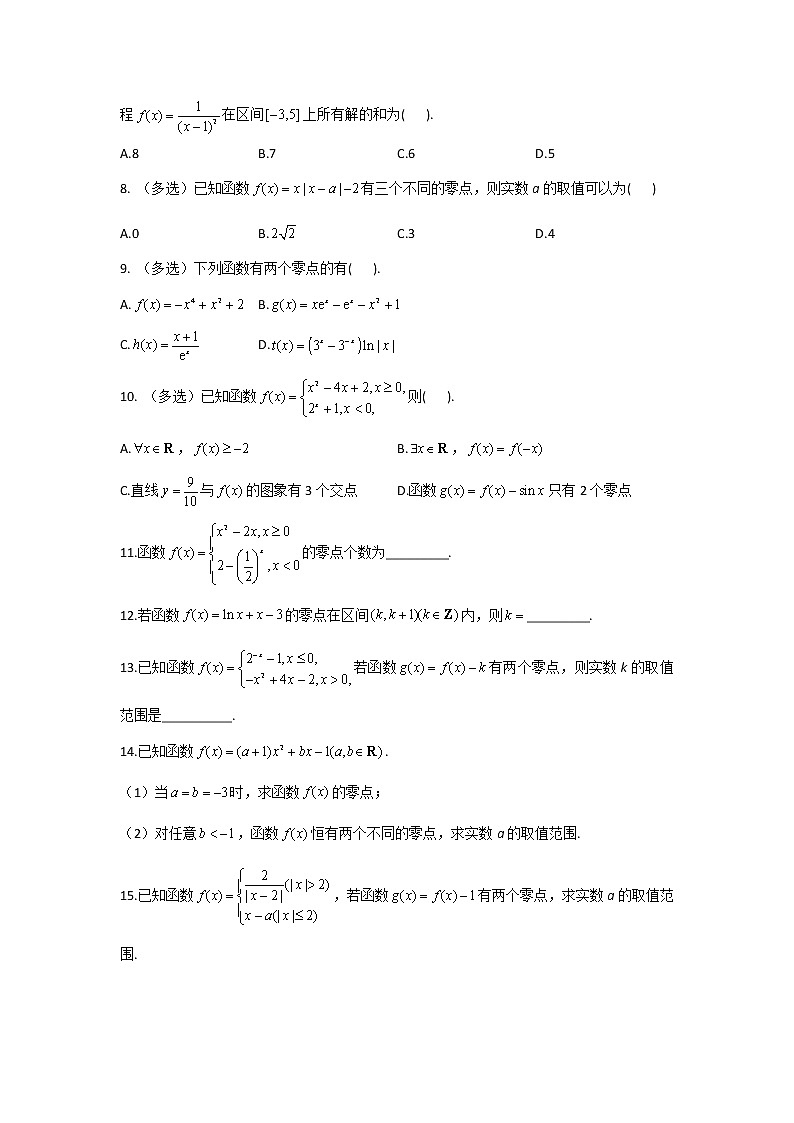 程 f(x) = 1/(x−1)² 在区间[−3,5] 上所有解的和为(　　).
A.8　　B.7　　C.6　　D.5
8. （多选）已知函数 f(x) = x | x − a | −2 有三个不同的零点，则实数 a 的取值可以为(　　)
A.0　　B. 2√2　　C.3　　D.4
9. （多选）下列函数有两个零点的有(　　).
A. f(x) = −x⁴ + x² + 2　B. g(x) = xeˣ − eˣ − x² + 1
C. h(x) = (x+1)/eˣ　　D. t(x) = (3ˣ − 3⁻ˣ) ln | x |
10. （多选）已知函数 f(x) = { x² − 4x + 2, x ≥ 0, 2ˣ + 1, x < 0, 则(　　).
A. ∀x ∈ R ， f(x) ≥ −2　　B. ∃x ∈ R ， f(x) = f(−x)
C.直线 y = 9/10 与 f(x) 的图象有 3 个交点　　D.函数 g(x) = f(x) − sin x 只有 2 个零点
11.函数 f(x) = { x² − 2x, x ≥ 0 2 − (1/2)ˣ, x < 0 的零点个数为_________.
12.若函数 f(x) = ln x + x − 3 的零点在区间 (k, k + 1)(k ∈ Z) 内，则 k = _________.
13.已知函数 f(x) = { 2⁻ˣ − 1, x ≤ 0, −x² + 4x − 2, x > 0, 若函数 g(x) = f(x) − k 有两个零点，则实数 k 的取值
范围是__________.
14.已知函数 f(x) = (a + 1)x² + bx − 1(a, b ∈ R) .
（1）当 a = b = −3 时，求函数 f(x) 的零点；
（2）对任意 b < −1 ，函数 f(x) 恒有两个不同的零点，求实数 a 的取值范围.
15.已知函数 f(x) = { 2/| x − 2 | (| x |> 2) x − a(| x |≤ 2) ，若函数 g(x) = f(x) − 1 有两个零点，求实数 a 的取值范
围.